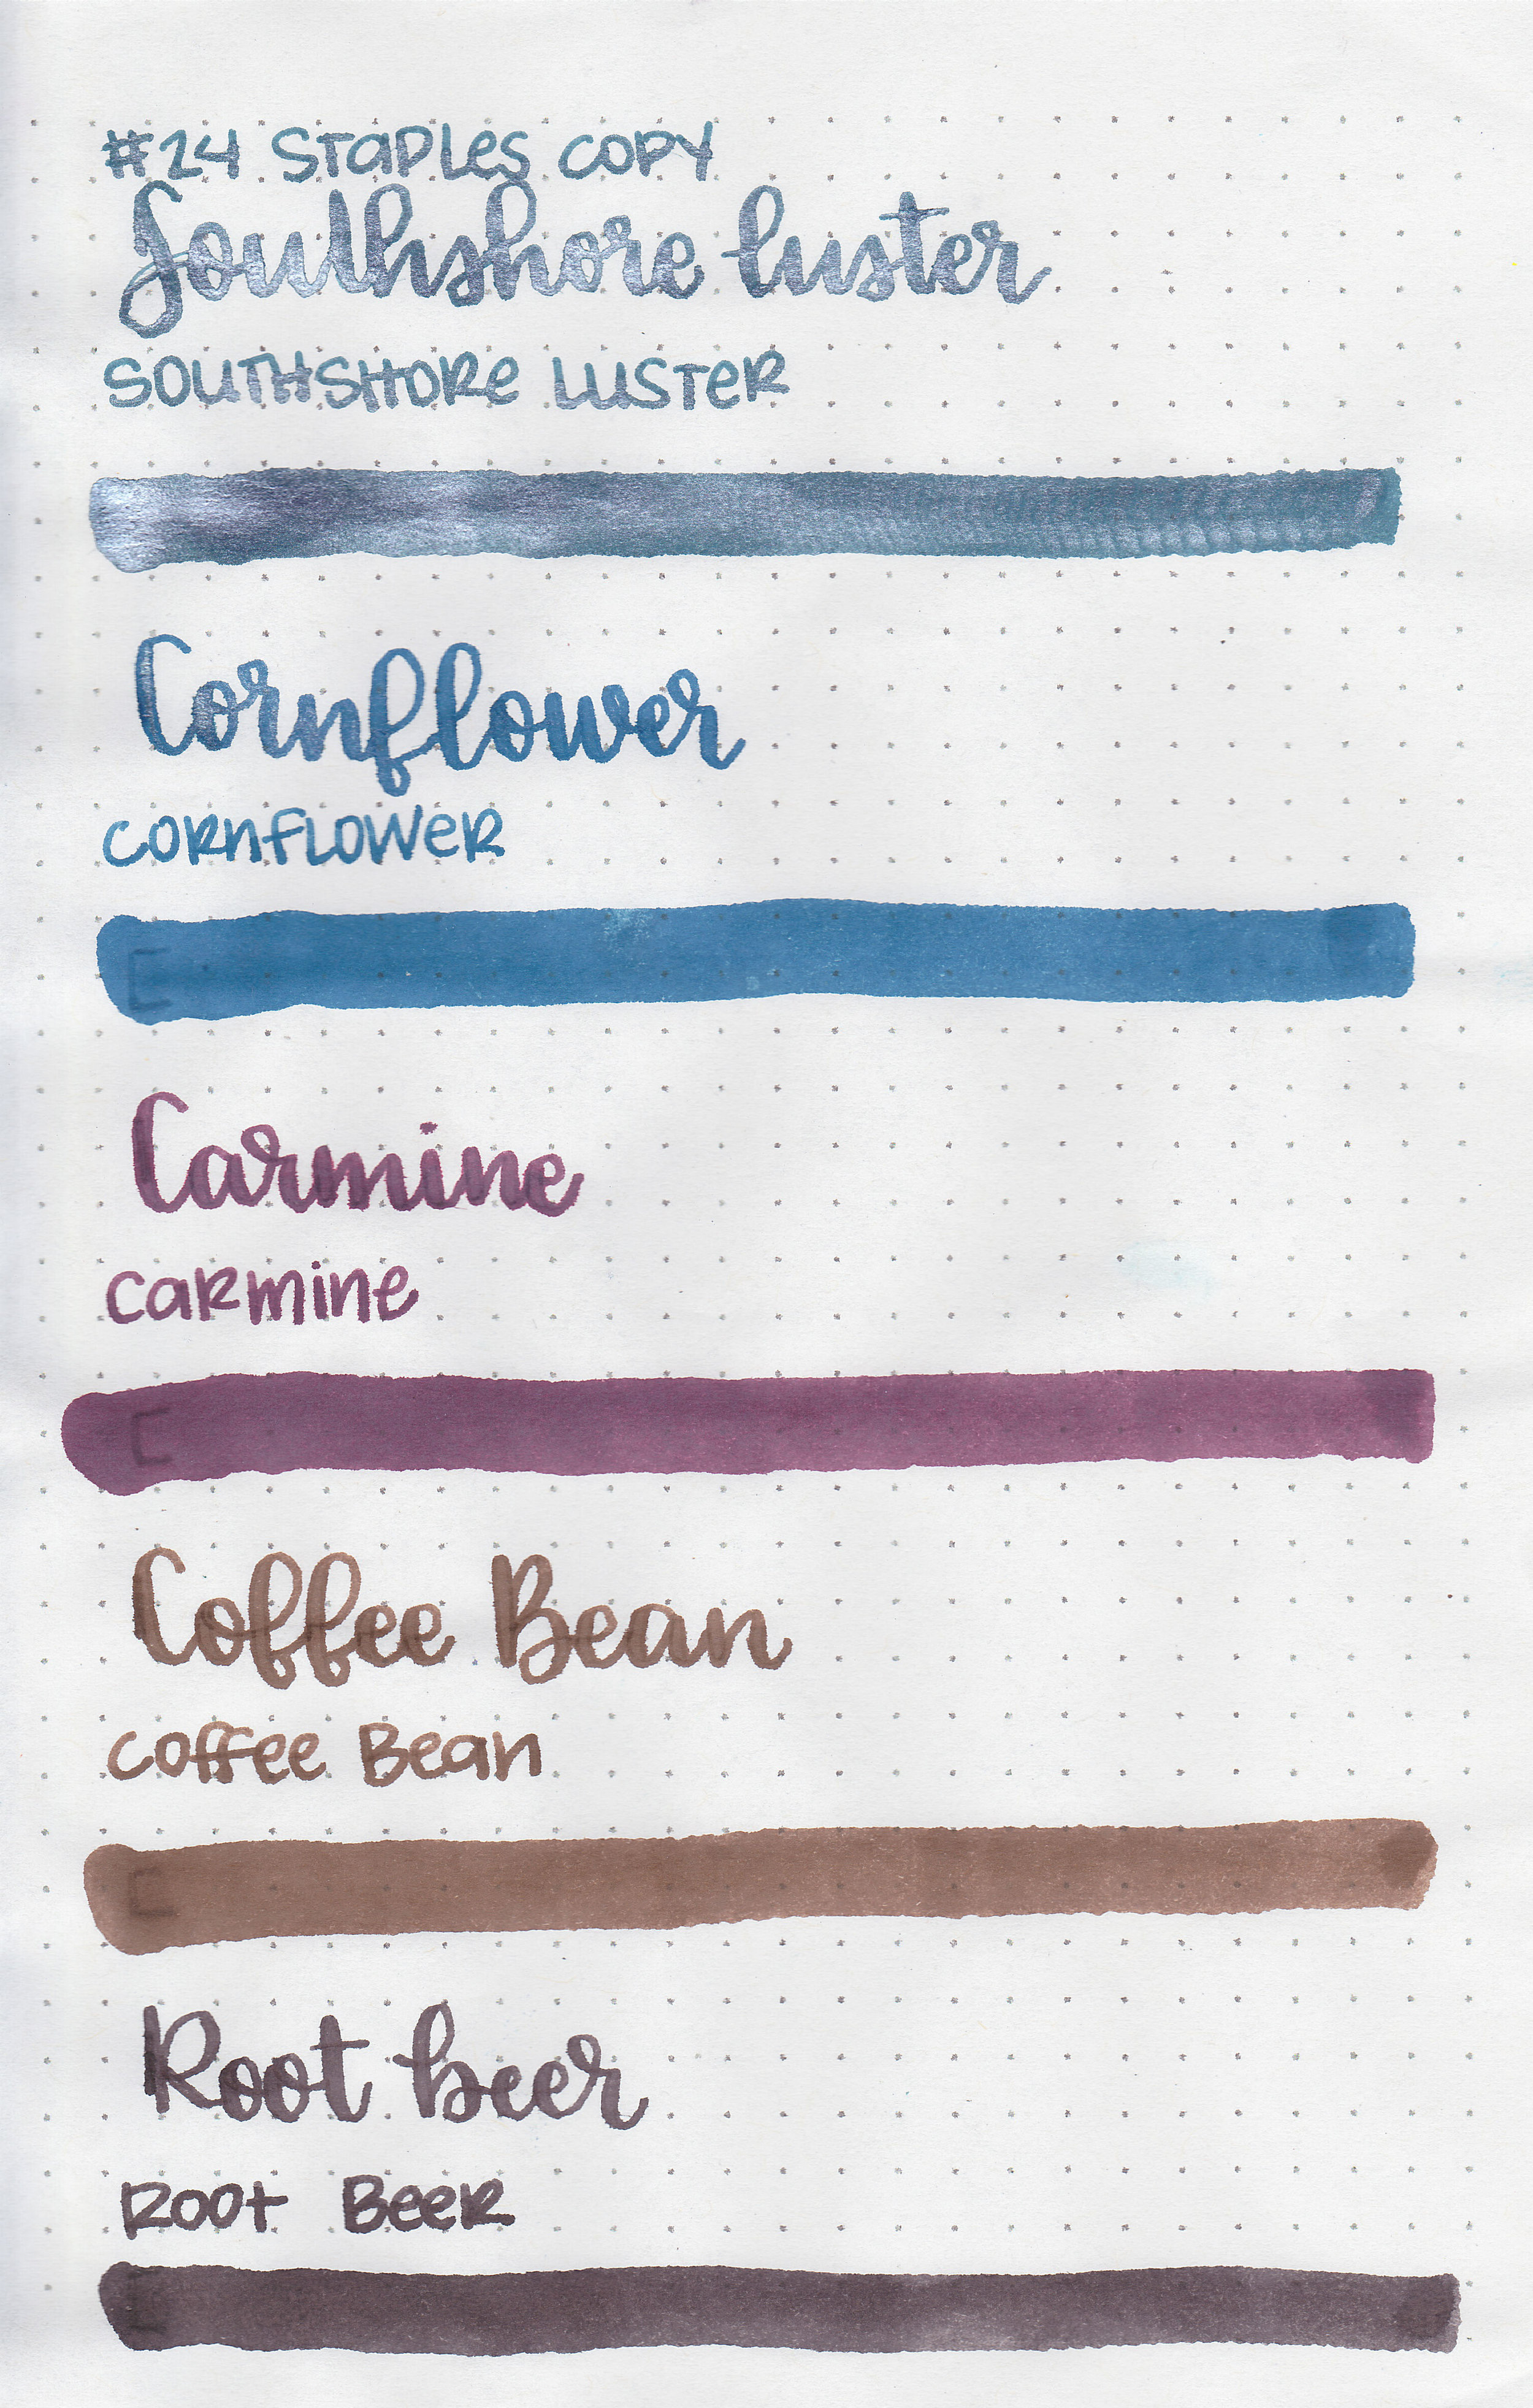 #24 Staples copy
Southshore luster
Southshore Luster
Cornflower
Cornflower
Carmine
carmine
Coffee Bean
Coffee Bean
Root beer
Root Beer